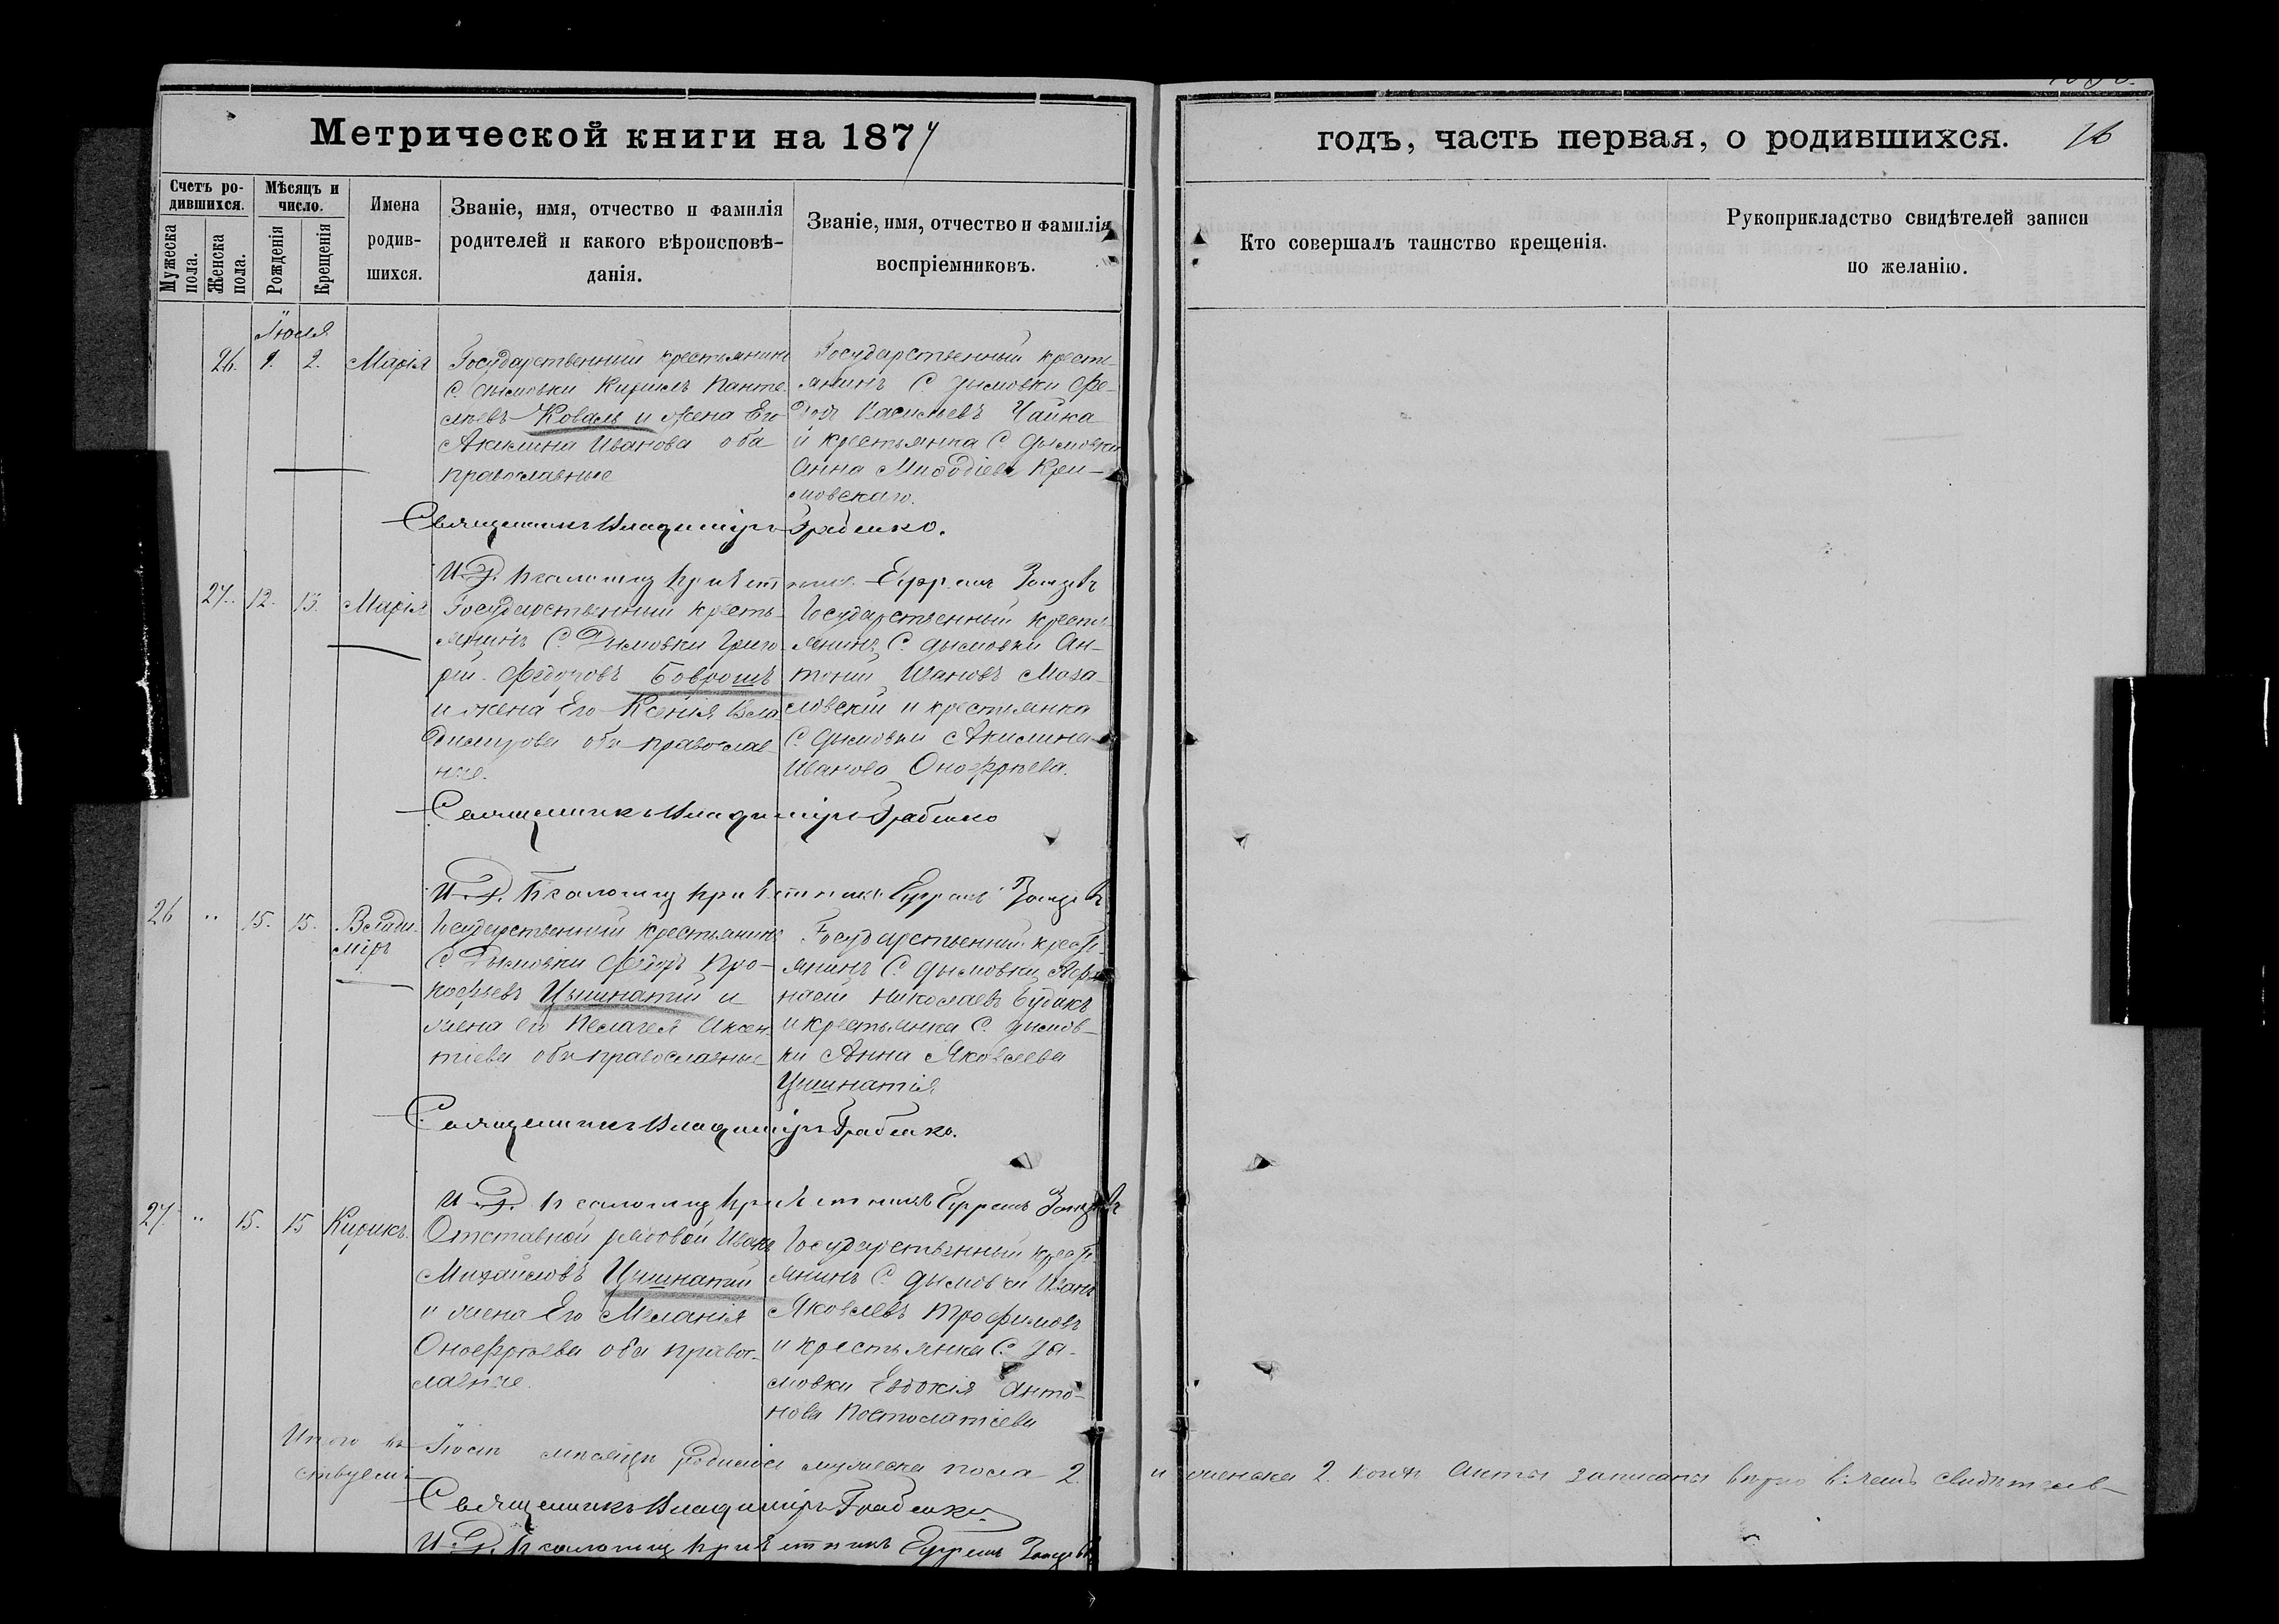 Метрической книги на 1874
годъ, часть первая, о родившихся.
76
Счетъ ро-
дившихся.
Мѣсяцъ и
число.
Мужеска
пола.
Женска
пола.
Рожденія
Крещенія
Имена
родив-
шихся.
Званіе, имя, отчество и фамилія
родителей и какого вѣроисповѣ-
данія.
Званіе, имя, отчество и фамилія
воспріемниковъ.
Кто совершалъ таинство крещенія.
Рукоприкладство свидѣтелей записи
по желанію.
Іюля
26. 1. 2. Марія
Государственный крестьянинъ
С. Дымовки Кирилъ Панте-
лѣевъ Коваль и жена Его
Акилина Иванова оба
православные
Государственный кресть-
янинъ С. Дымовки Фе-
доръ Васильевъ Чайка
и крестьянка С. Дымовки
Анна Мифодіева
Священникъ Владиміръ Грабенко.
И. Д. Псаломщ. Ефремъ
27. 12. 13. Марія
Государственный кресть-
янинъ С. Дымовки Григо-
рій Федоровъ Боврошъ
и жена Его Ксенія Вла-
димирова оба православ-
ные.
Государственный кресть-
янинъ С. Дымовки Ан-
тоній Ивановъ
и крестьянка
С. Дымовки Акилина
Иванова Оноефрѣева.
Священникъ Владиміръ Грабенко
И. Д. Псаломщ. Ефремъ
26 " 15. 15. Влади-
міръ
Государственный крестьянинъ
С. Дымовки Федоръ Про-
кофьевъ Цышнатій и
жена его Пелагея Аксен-
тіева оба православные
Государственный кресть-
янинъ С. Дымовки Афа-
насій Николаевъ Будакъ
и крестьянка С. Дымов-
ки Анна Яковлева
Цышнатія
Священникъ Владиміръ Грабенко.
И. Д. Псаломщ. Ефремъ
27. " 15. 15 Кирикъ.
Отставной рядовой Иванъ
Михайловъ Цышнатій
и жена Его Меланія
Оноефрѣева оба правос-
лавные.
Государственный кресть-
янинъ С. Дымовки Иванъ
Яковлевъ Трофимовъ
и крестьянка С. Ды-
мовки Евдокія Анто-
нова Постолатіева
Итого въ Іюлѣ мѣсяцѣ родилось мужеска пола 2. и женска 2. акты записаны вѣрно въ чемъ свидѣтель-
ствуемъ
Священникъ Владиміръ Грабенко
И. Д. Псаломщ. Ефремъ